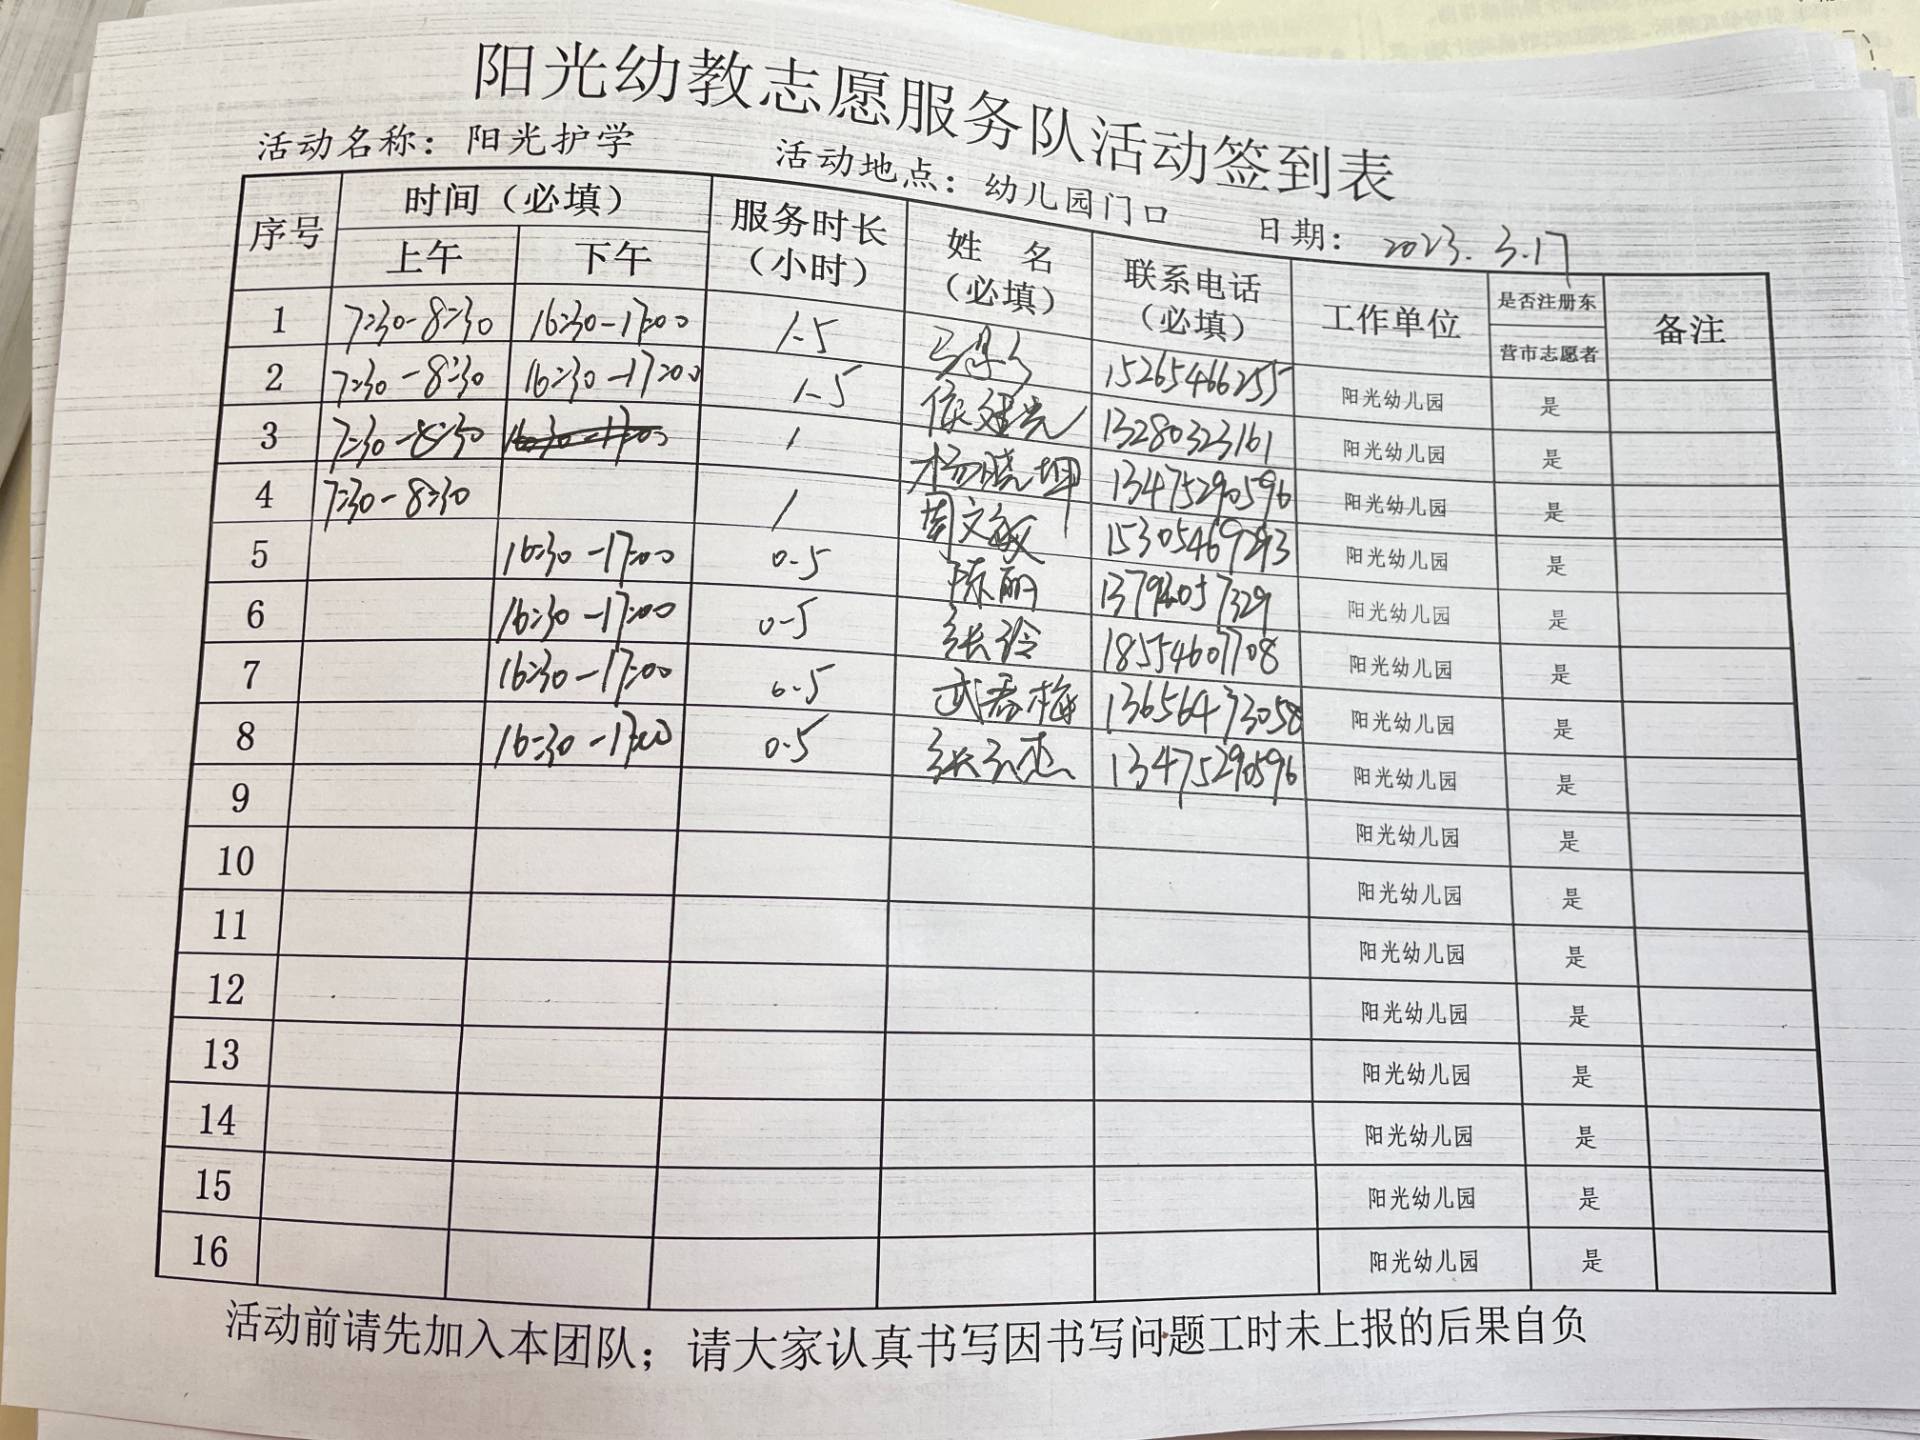 阳光幼教志愿服务队活动签到表
活动名称：阳光护学 活动地点：幼儿园门口 日期：2023.3.17
序号 时间（必填） 服务时长（小时） 姓名（必填） 联系电话（必填） 工作单位 是否注册东营市志愿者 备注
上午 下午
1 7:30-8:30 16:30-17:00 1.5 15265466255 阳光幼儿园 是
2 7:30-8:30 16:30-17:00 1.5 13280323161 阳光幼儿园 是
3 7:30-8:30 16:30-17:00 1 杨晓坤 13475290596 阳光幼儿园 是
4 7:30-8:30 1 周文敏 15305469293 阳光幼儿园 是
5 16:30-17:00 0.5 陈丽 阳光幼儿园 是
6 16:30-17:00 0.5 张玲 18554607708 阳光幼儿园 是
7 16:30-17:00 0.5 武春梅 13656473058 阳光幼儿园 是
8 16:30-17:00 0.5 13475290596 阳光幼儿园 是
9 阳光幼儿园 是
10 阳光幼儿园 是
11 阳光幼儿园 是
12 阳光幼儿园 是
13 阳光幼儿园 是
14 阳光幼儿园 是
15 阳光幼儿园 是
16 阳光幼儿园 是
活动前请先加入本团队；请大家认真书写因书写问题工时未上报的后果自负